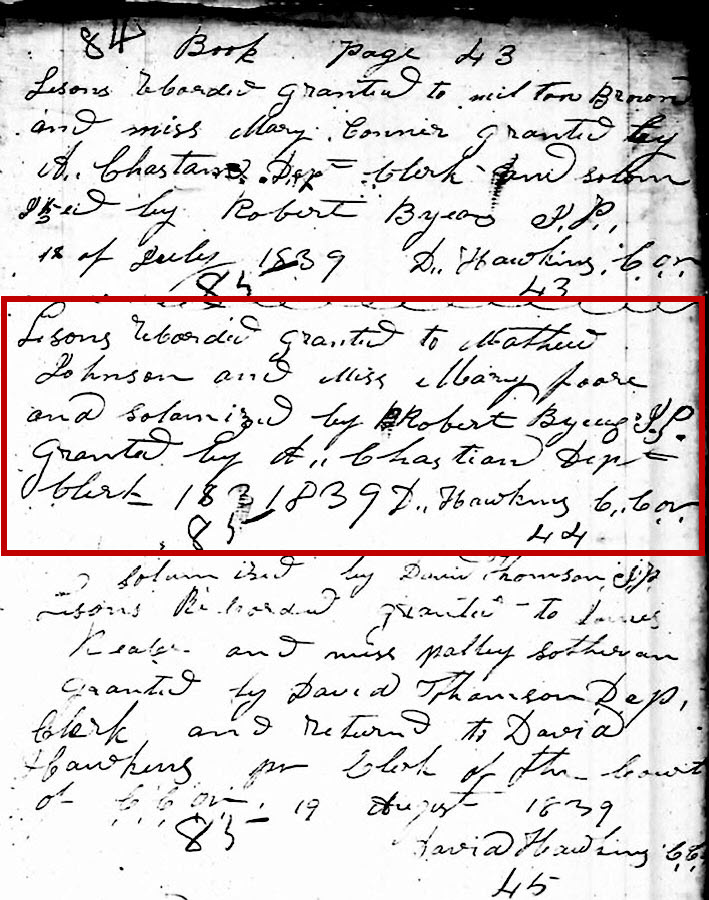 84 Book page 43
Lisons Reborded granted to milton Brown
and miss Mary Conner granted by
A. Chastan Dep Clerk and solom
ized by Robert Byeas J.P.
18 of July 1839 D,, Hawkins, C. Cor
85 43
Lisons Reborded granted to Mathew
Johnson and Miss Mary Poore
and Solamized by Robert Byeas J.P.
Granted by A,, Chastian Dept
Clerk 183 1839 D,, Hawkins C,, Cor
85 44
Solamized by David Thomson J.P.
Lisons Reborded granted to James
and miss polley Sotheran
granted by David Thomson Dep,
Clerk and Returnd to David
Hawkins pr Clerk of the Court
of C. C. Cor, 19 August 1839
85
David Hawkins C.C.
45